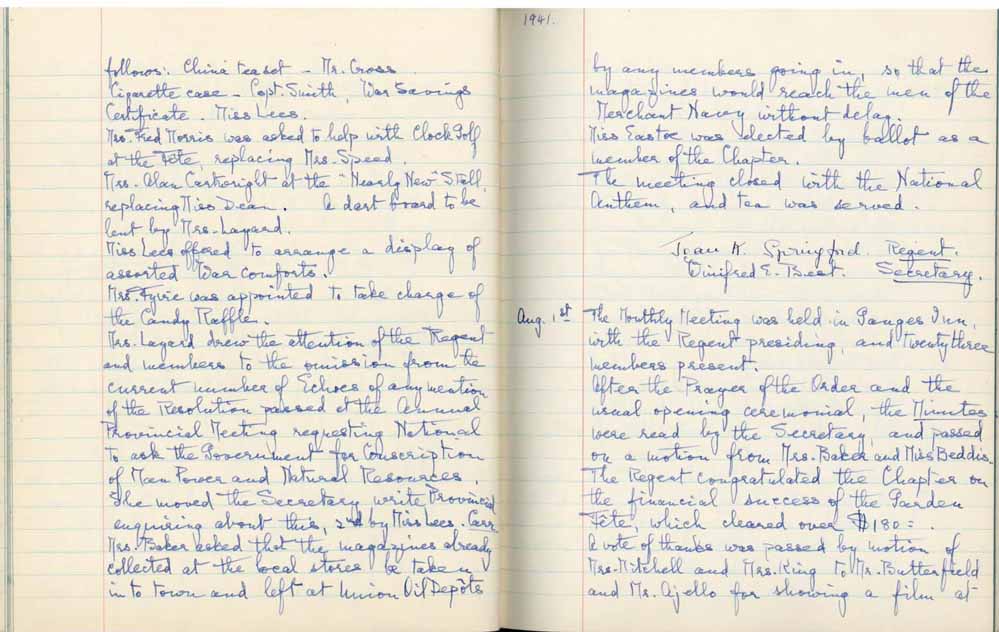 follows: China teaset - Mr. Cross
Cigarette case - Capt. Smith, War Savings
Certificate. Miss Lees.
Mrs. Fred Morris was asked to help with Clock Golf
at the Fête, replacing Mrs. Speed.
Mrs. Alan Cartwright at the "Nearly New" Stall,
replacing Miss Dean. A dart board to be
lent by Mrs. Layard.
Miss Lees offered to arrange a display of
assorted War comforts.
Mrs. Fyvie was appointed to take charge of
the Candy Raffle.
Mrs. Layard drew the attention of the Regent
and members to the omission from the
current number of Echoes of any mention
of the Resolution passed at the Annual
Provincial Meeting requesting National
to ask the Government for Conscription
of Man Power and Natural Resources.
She moved the Secretary write Provincial
enquiring about this, 2nd by Miss Lees. Carr.
Mrs. Baker asked that the magazines already
collected at the local stores be taken
in to town and left at Union Oil Depôts
1941.
by any members going in, so that the
magazines would reach the men of the
Merchant Navy without delay.
Miss Eastoe was elected by ballot as a
member of the Chapter.
The meeting closed with the National
Anthem, and tea was served.
Jean A. Springford Regent.
Winifred E. Best. Secretary.
Aug. 1st The Monthly Meeting was held in Ganges Inn,
with the Regent presiding, and twenty three
members present.
After the Prayer of the Order and the
usual opening ceremonial, the Minutes
were read by the Secretary, and passed
on a motion from Mrs. Baker and Miss Beddis.
The Regent congratulated the Chapter on
the financial success of the Garden
Fête, which cleared over $180=.
A vote of thanks was passed by motion of
Mrs. Mitchell and Mrs. King to Mr. Butterfield
and Mr. Ajello for showing a film at